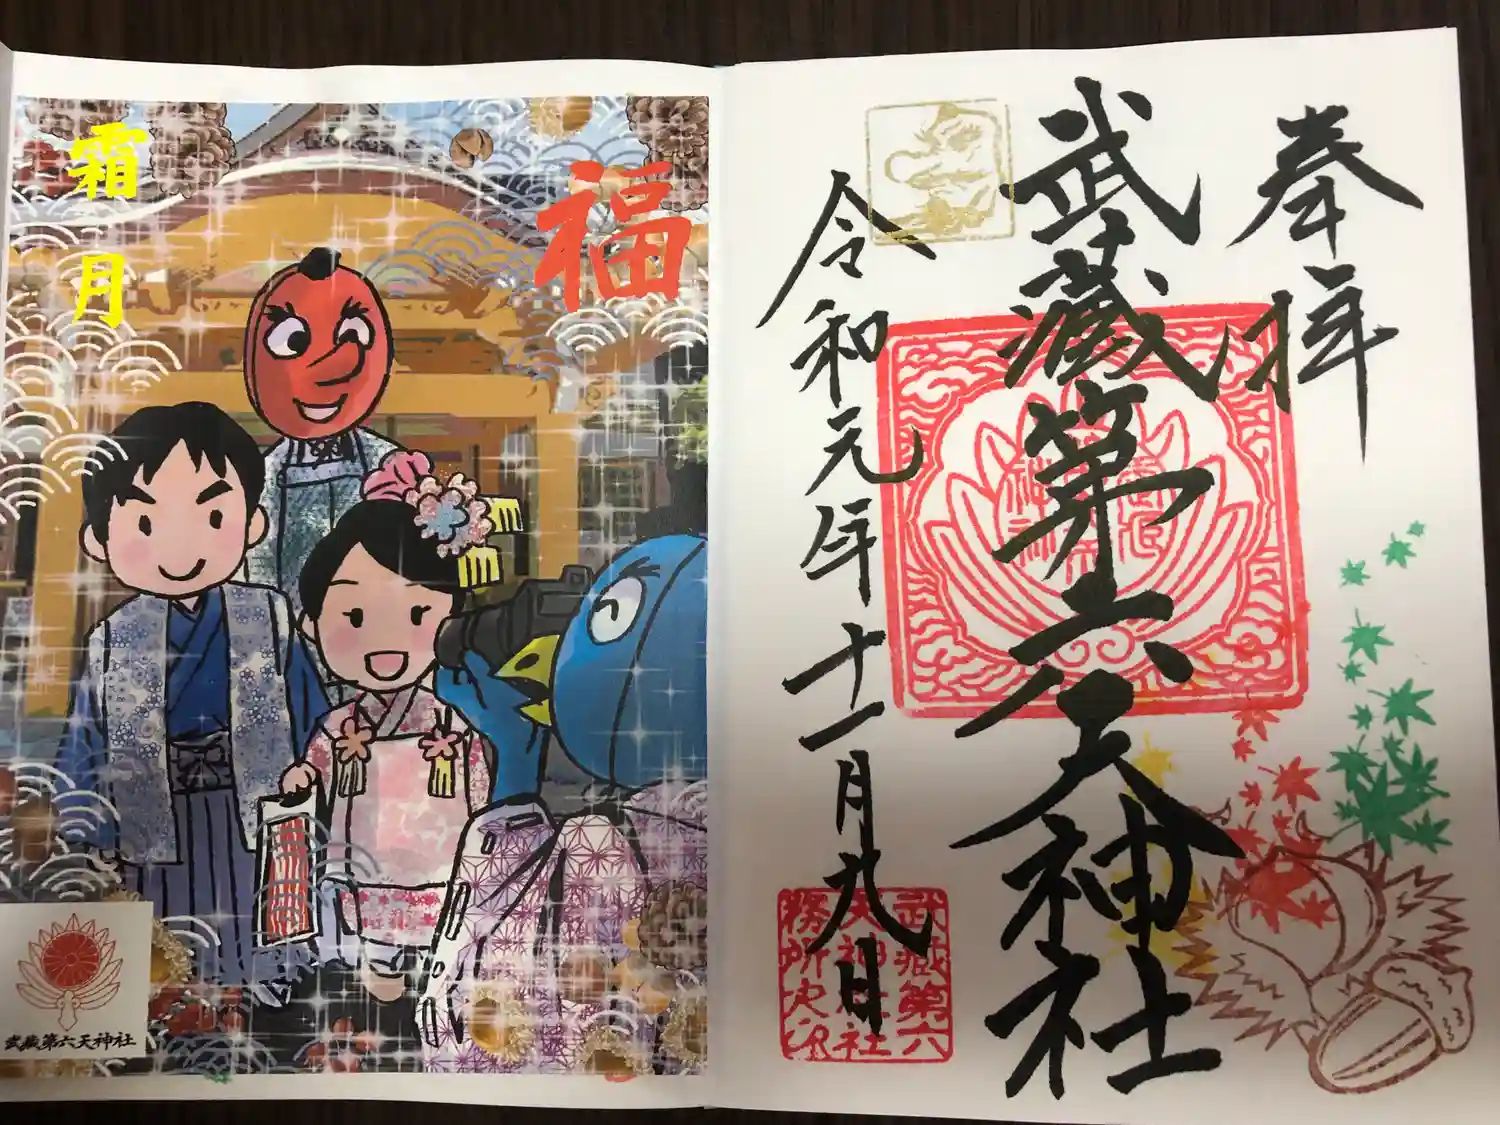 奉拝
武蔵第六天神社
令和元年十一月九日
武蔵第六
天神社社
務所之印
福
霜月
武蔵第六天神社